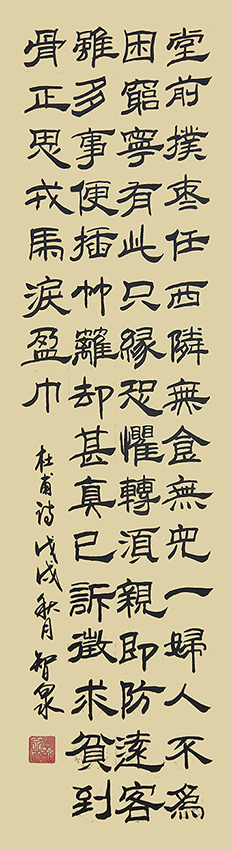 堂前撲棗任西隣無食無兒一婦人不為
困窮寧有此只緣恐懼轉須親即防遠客
雖多事便插竹籬却甚真已訴徵求貧到
骨正思戎馬淚盈巾
杜甫詩戊戌秋月智泉